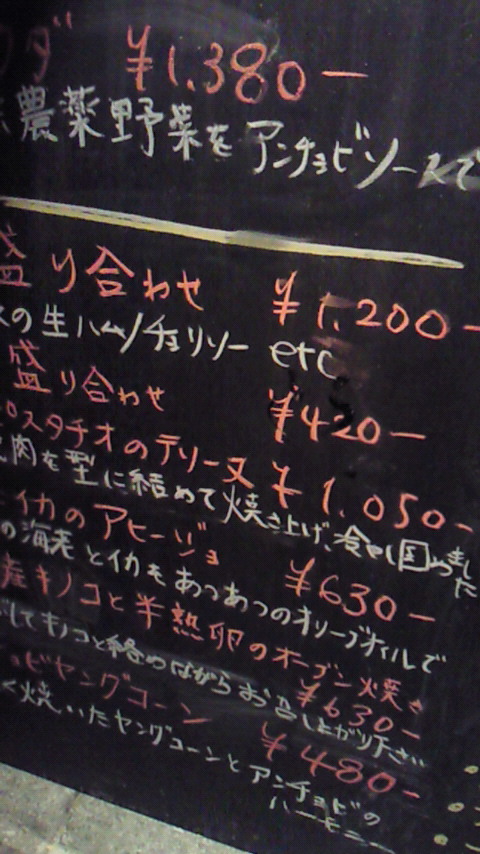 ウダ ¥1,380-
農薬野菜をアンチョビソースで
盛り合わせ ¥1,200-
の生ハム/チョリソー etc
盛り合わせ ¥420-
ピスタチオのテリーヌ ¥1,050-
肉を型に結めて焼き上げ、冷やし固めました
イカのアヒージョ ¥630-
の海老とイカをあつあつのオリーブオイルで
産キノコと半熟卵のオーブン焼き ¥630-
してキノコと絡めながらお召し上がり下さい
ョビヤングコーン ¥480-
く焼いたヤングコーンとアンチョビのハーモニー